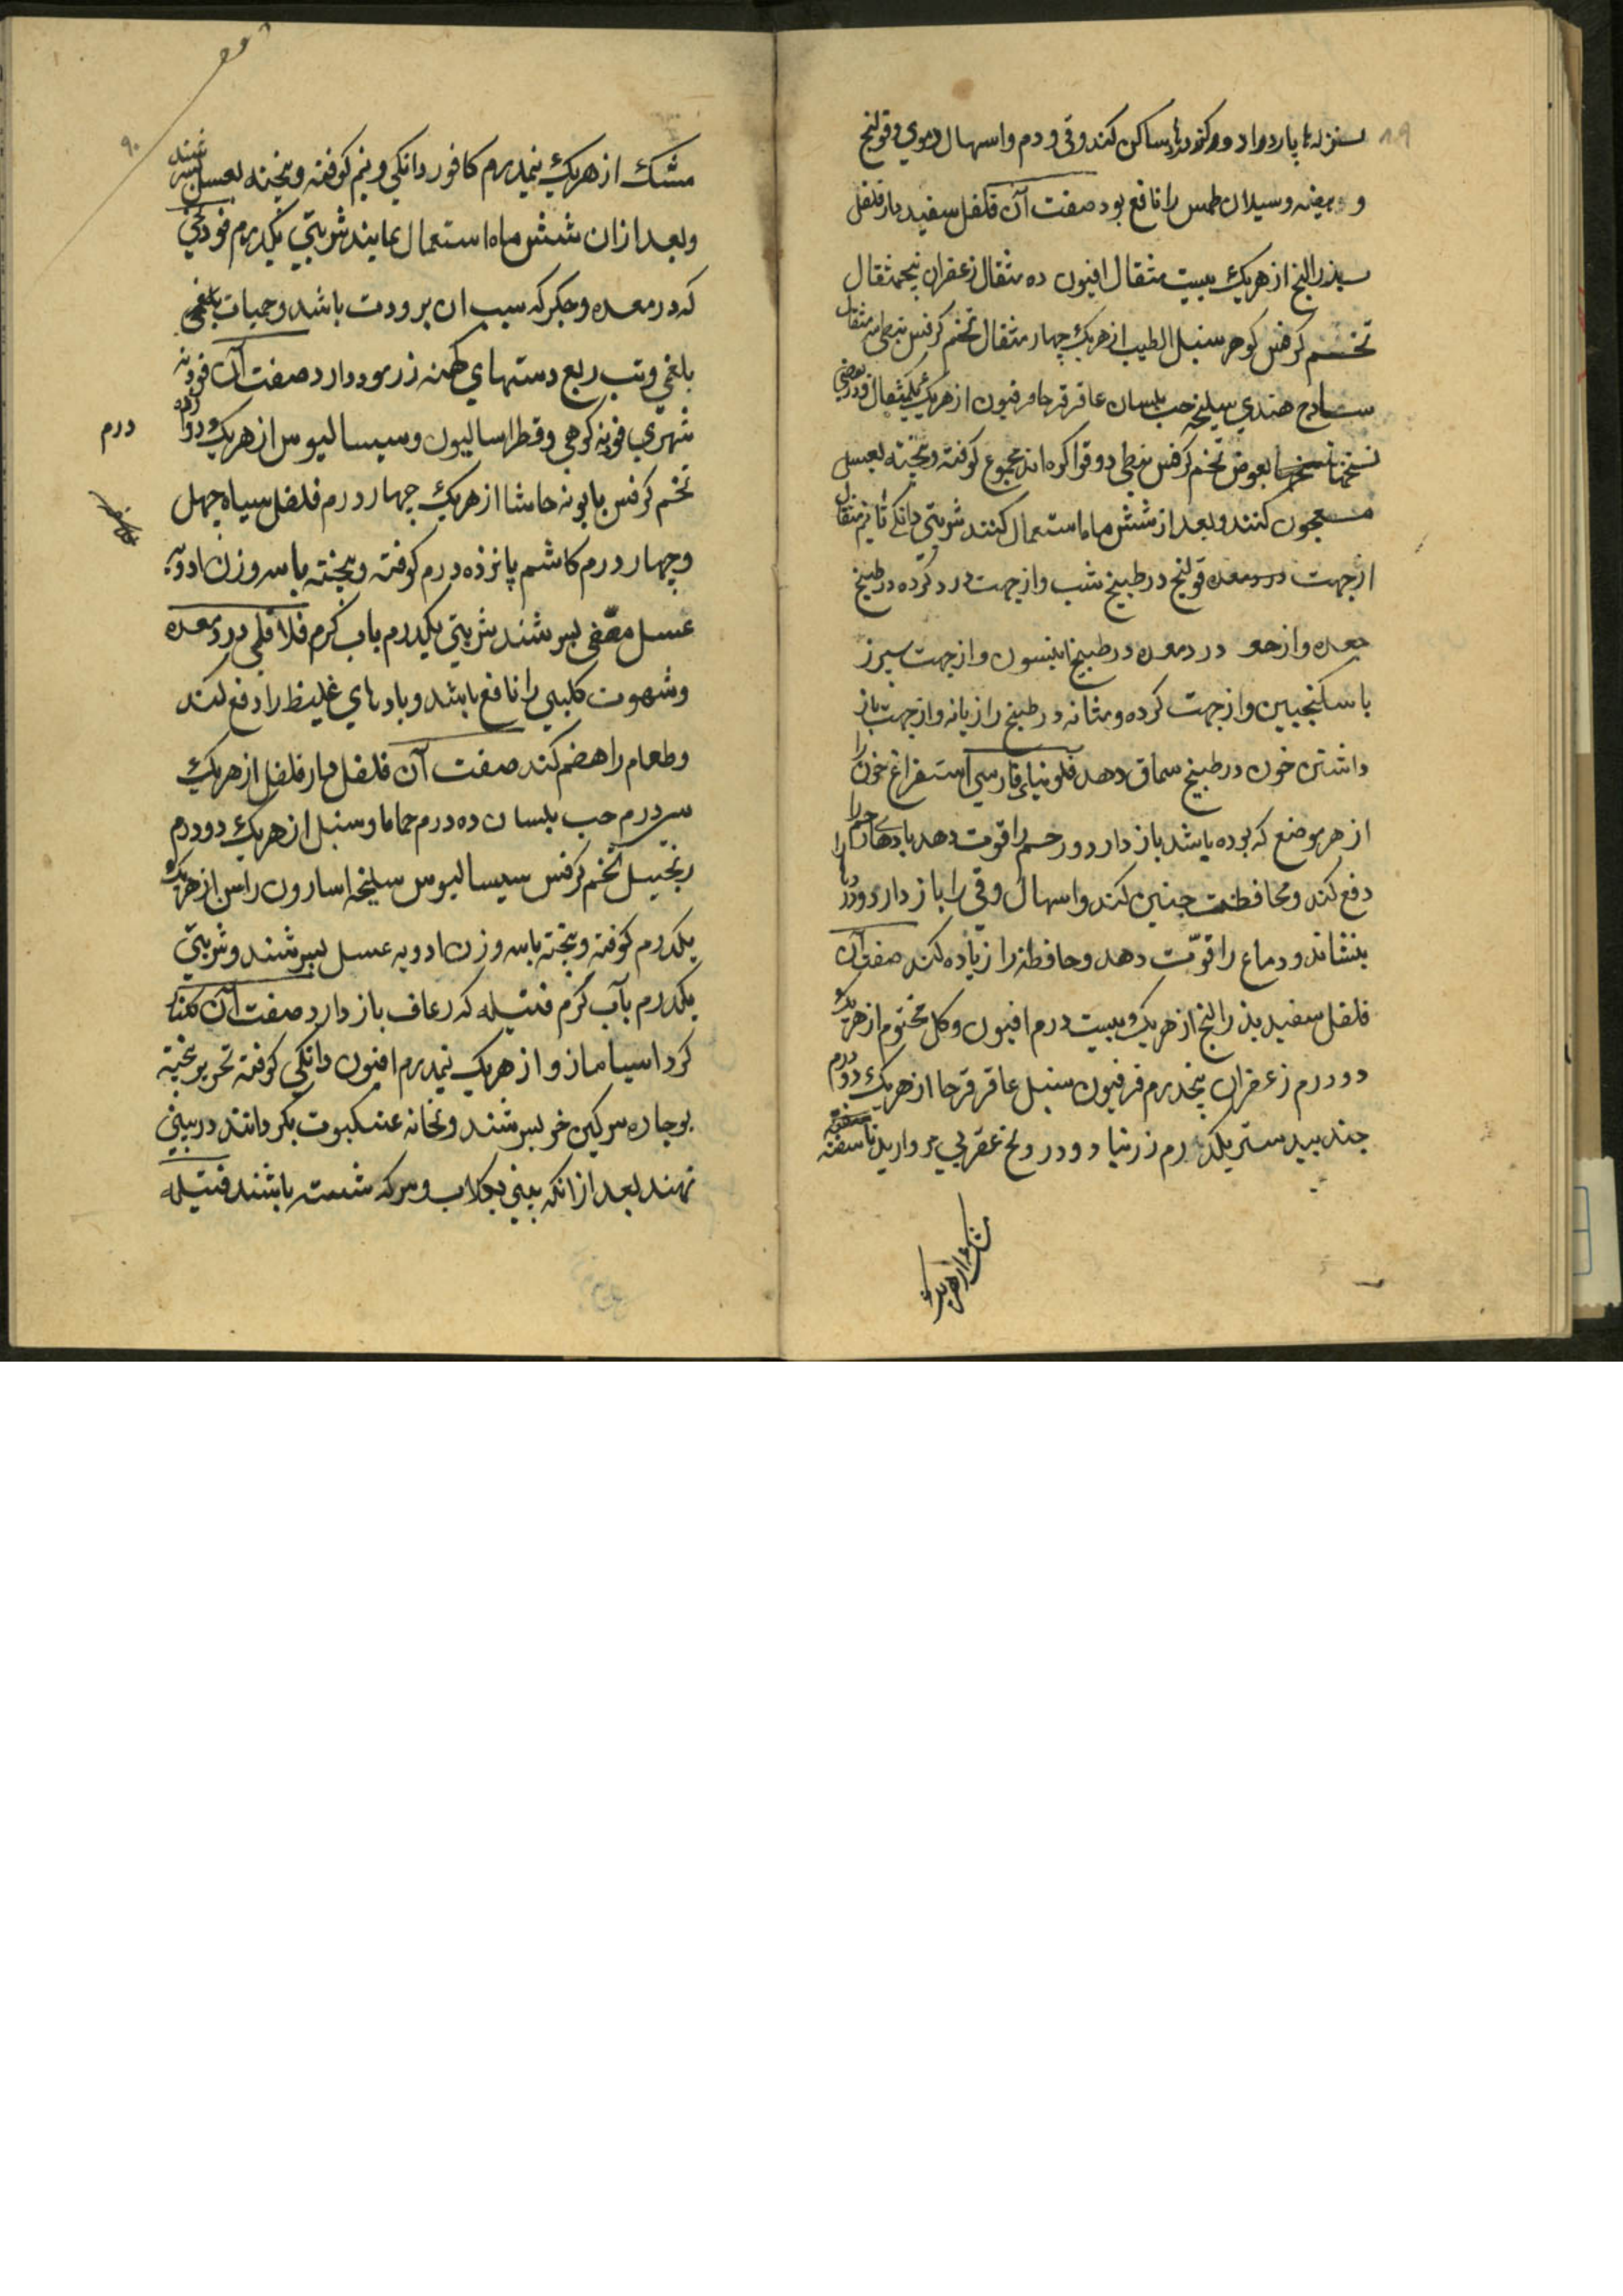 ۸۹
نزله‌ها باز دارد و دردها ساکن کند و قی و دم و اسهال دموی و قولنج
و هیضه و سیلان طمس را نافع بود صفت آن فلفل سفید دارفلفل
بذر البنج از هریک بیست مثقال افیون ده مثقال زعفران پنجمثقال
تخم کرفس کوهر سنبل الطیب از هریک چهار مثقال تخم کرفس نبطی سه مثقال
سادج هندی سلیخه حب بلسان عاقرقرحا فرفیون از هریک یکمثقال و در بعضی
نسخها بعوض تخم کرفس نبطی دوقوا کرده‌اند مجموع کوفته و بیخته بعسل
معجون کنند و بعد از شش ماه استعمال کنند شربتی دانکی تا نیم مثقال
از جهت درد معده قولنج در طبیخ شب و از جهت درد کرده در طبیخ
جعده و از جهت درد معده در طبیخ انیسون و از جهت سپرز
با سکنجبین و از جهت کرده و مثانه در طبیخ رازیانه و از جهت باز
داشتن خون در طبیخ سماق دهد فلونیای فارسی استفراغ خون را
از هر موضع که بوده باشد باز دارد و رحم را قوت دهد بادهای رحم را
دفع کند و محافظت جنین کند و اسهال و قی را باز دارد و دردها را
بنشاند و دماغ را قوّت دهد و حافظه را زیاده کند صفت آن
فلفل سفید بذر البنج از هریک بیست درم افیون و کل مختوم از هریک
دو درم زعفران پنجدرم فرفیون سنبل عاقرقرحا از هریک دو درم
جندبیدستر یکدرم زرنباد و درونج عقربی مروارید ناسفته
مشک از هریک
۹۰
مشک از هریک نیمدرم کافور دانکی و نیم کوفته و بیخته بعسل بسرشند
و بعد از ان شش ماه استعمال نمایند شربتی یکدرم فودنجی
که در معده و جکر که سبب ان برودت باشد و حمیات بلغمی
بلغمی و تب ربع دستهای کهنه زر سود دارد صفت آن فودنه
نهری فودنه کوهی و فطراسالیون و سیسالیوس از هریک دوازده
درم
تخم کرفس بابونه حاشا از هریک چهار درم فلفل سیاه چهل
و چهار درم کاشم پانزده درم کوفته و بیخته با سه وزن ادویه
عسل مصفی بسرشند شربتی یکدرم باب کرم فلافلی درد معده
و شهوت کلبی را نافع باشد و بادهای غلیظ را دفع کند
و طعام را هضم کند صفت آن فلفل دارفلفل از هریک
سی درم حب بلسان ده درم حماما و سنبل از هریک دو درم
زنجبیل تخم کرفس سیسالیوس سلیخه اسارون راسن از هریک
یکدرم کوفته و بیخته با سه وزن ادویه عسل بسرشند و شربتی
یکدرم بآب کرم فتیله که رعاف باز دارد صفت آن کلنار
کرد اسیا مازو از هریک نیمدرم افیون دانکی کوفته بحریر بیخته
بوجاره سرکین خر بسرشند و بخانه عنکبوت بکردانند در بینی
نهند بعد از انکه بینی بکلاب و سرکه شسته باشند فتیله